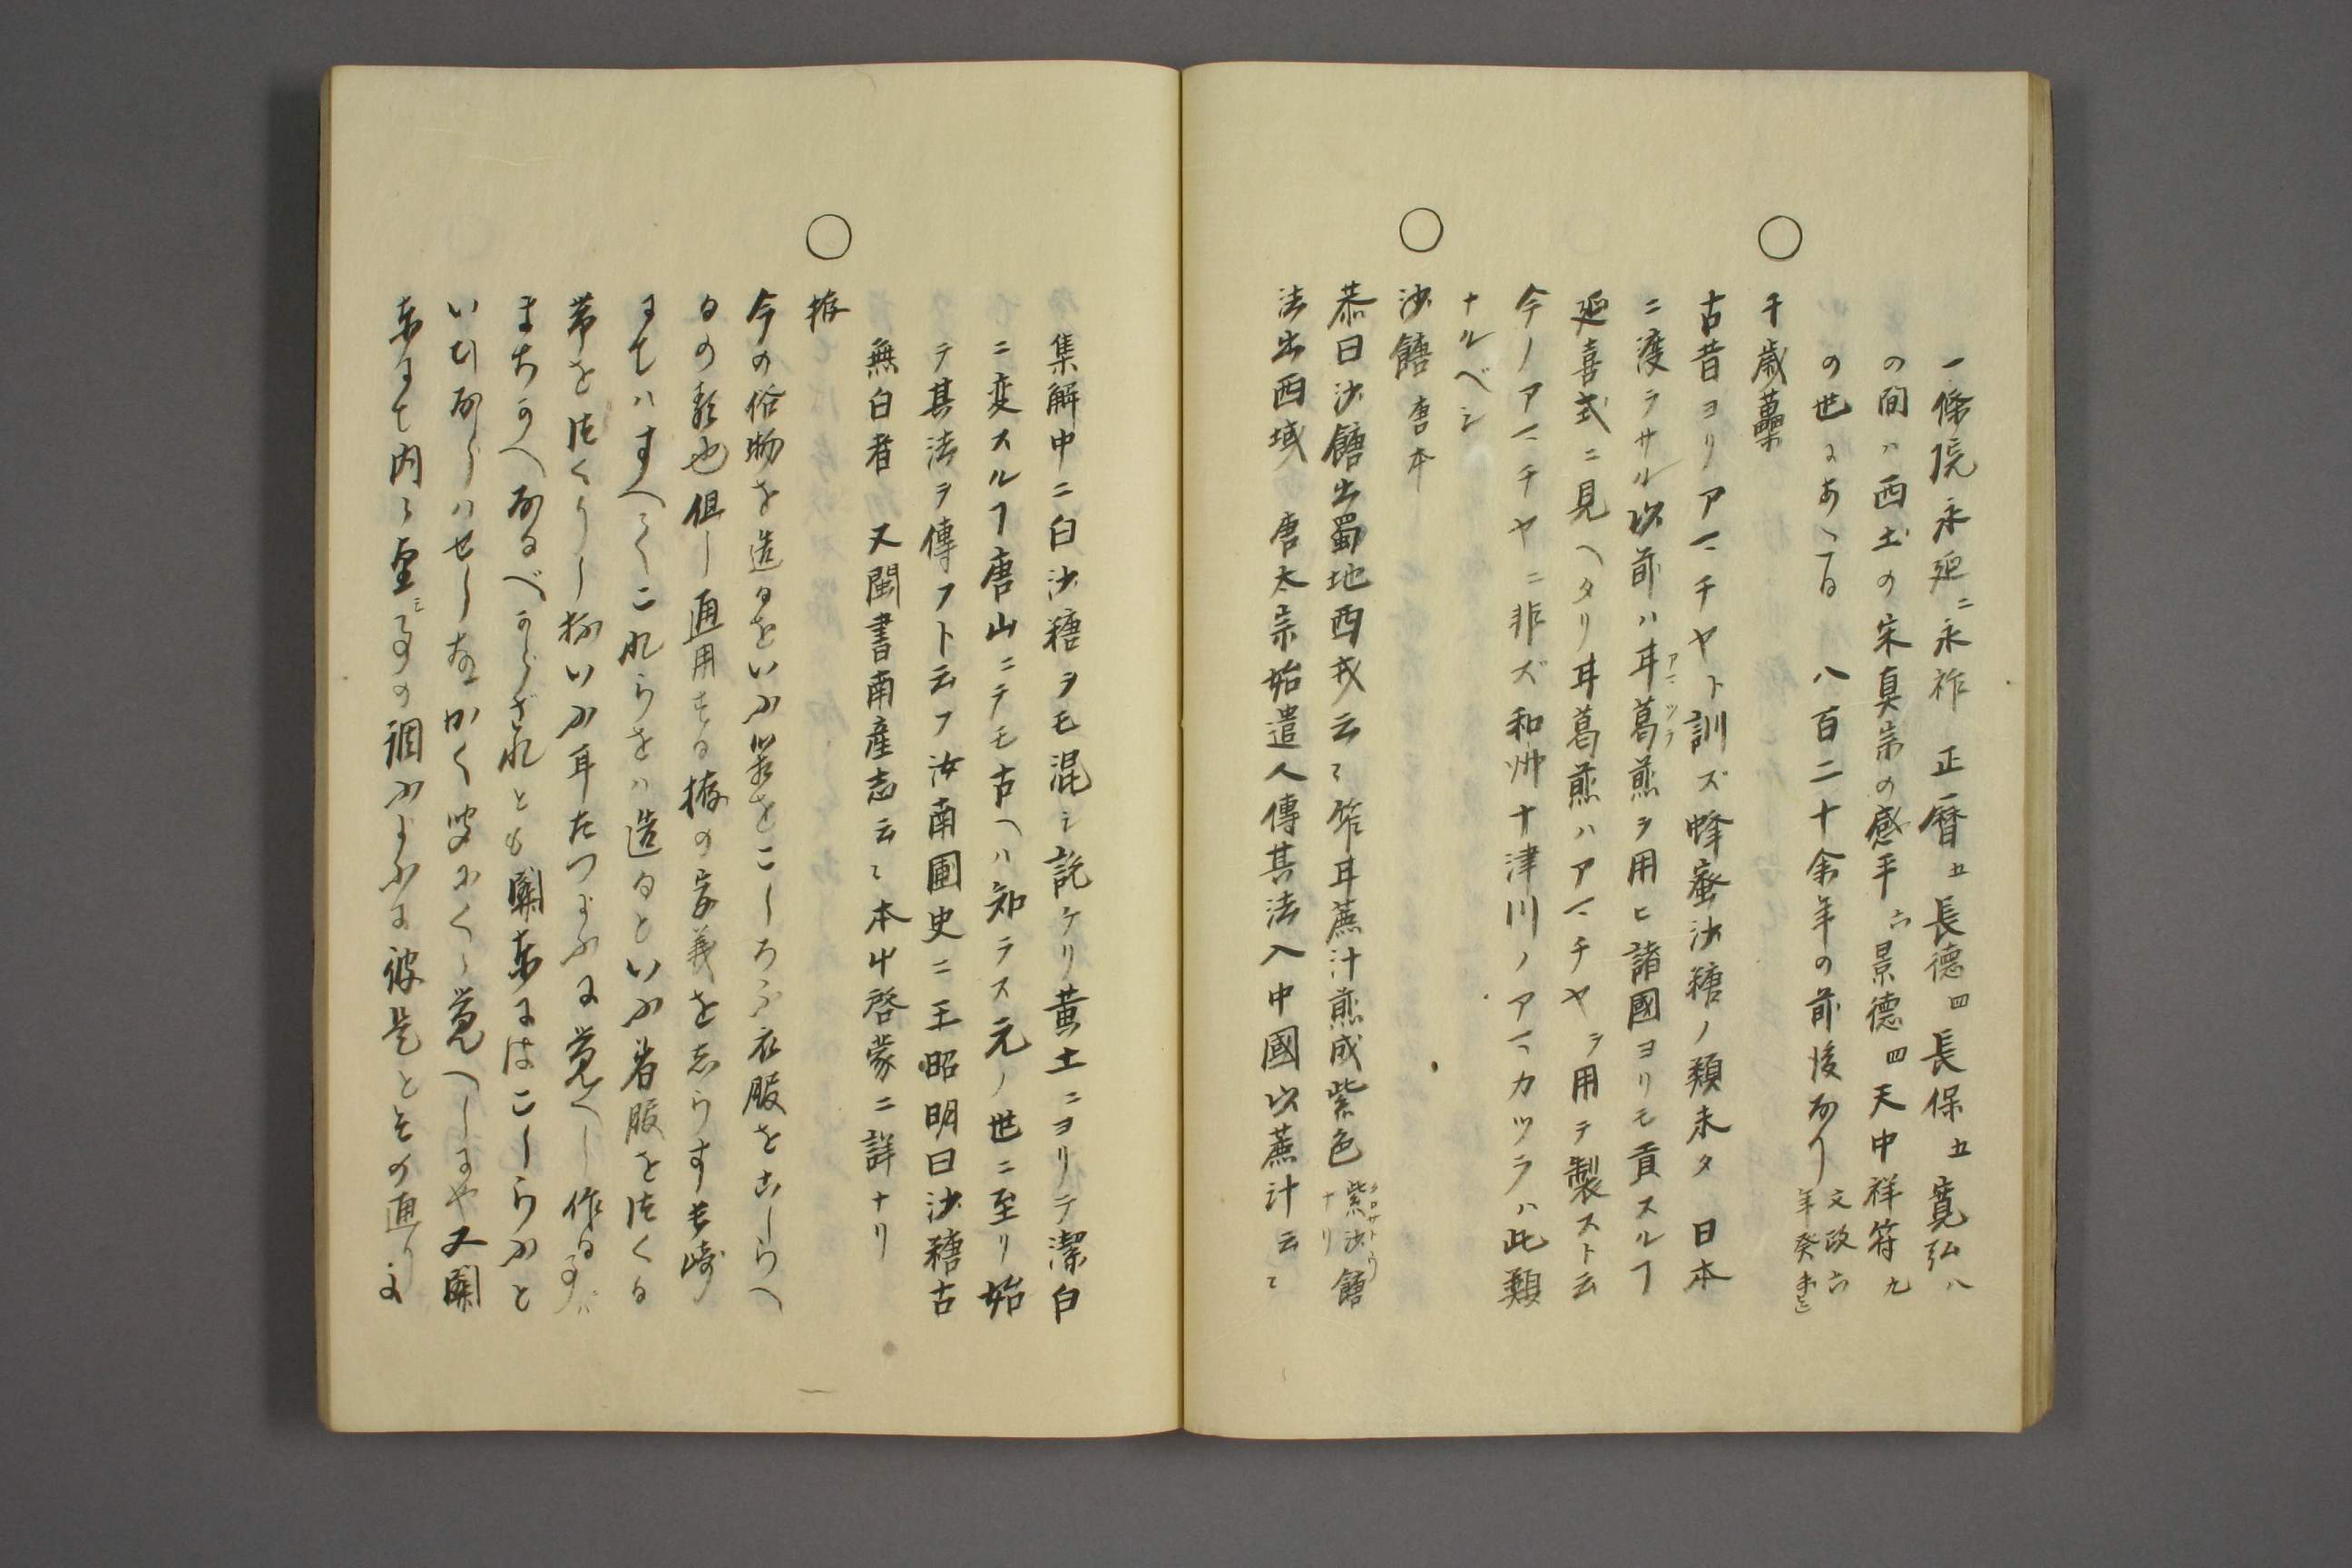 一條院永延二永祚 正暦五長德四長保五寛弘八
の間ハ西土の宋真宗の咸平六景德四天中祥符九
の世にあゝる 八百二十余年の前後あり 文政六年癸未迄
○ 千歳虆
古昔ヨリアマチヤト訓ズ蜂蜜沙糖ノ類未タ日本
ニ渡ラサル以前ハ甘葛煎ヲ用ヒ諸國ヨリモ貢スルヿ
延喜式ニ見ヘタリ甘葛煎ハアマチヤヲ用テ製スト云
今ノアマチヤニ非ズ和州十津川ノアマカツラハ此類
ナルベシ
○ 沙餹 唐本
恭曰沙餹出蜀地西戎云々笮甘蔗汁煎成紫色 紫沙餹ナリ
法出西域 唐太宗始遣人傳其法入中國以蔗汁云々
集解中ニ白沙糖ヲモ混シ説ケリ黄土ニヨリテ潔白
ニ変スルヿ唐山ニテモ古ヘハ知ラス元ノ世ニ至リ始
テ其法ヲ傳フト云フ汝南圃史ニ王昭明曰沙糖古
無白者 又閩書南産志云々本艸啓蒙ニ詳ナリ
○ 拵
今の俗物を造るをいふ衣服をこしらへ
るの類也但し通用する拵の字義を志らす長崎
にてハすへてこれらをハ造るといふ着服をつくる
帯をつくりし抔いふ耳たつように覚へし作る
まちかへあるべからざれとも關東にはこしらふと
かく覚へしにや又關
東にて内の調ふように彼是とその通りに